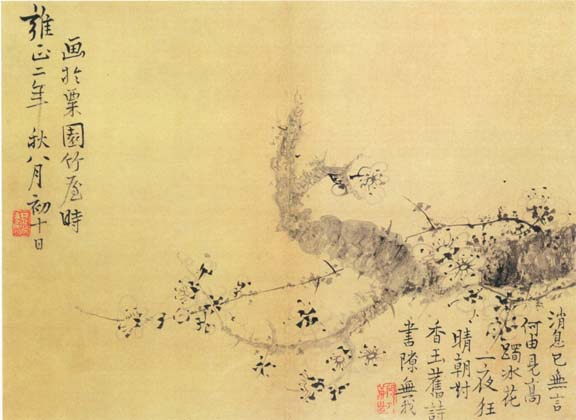 消息已無言
何由見高
躅冰花
一夜狂
晴朝對
香玉舊詩
書隙無我
画於栗園竹屋時
雍正二年秋八月初十日